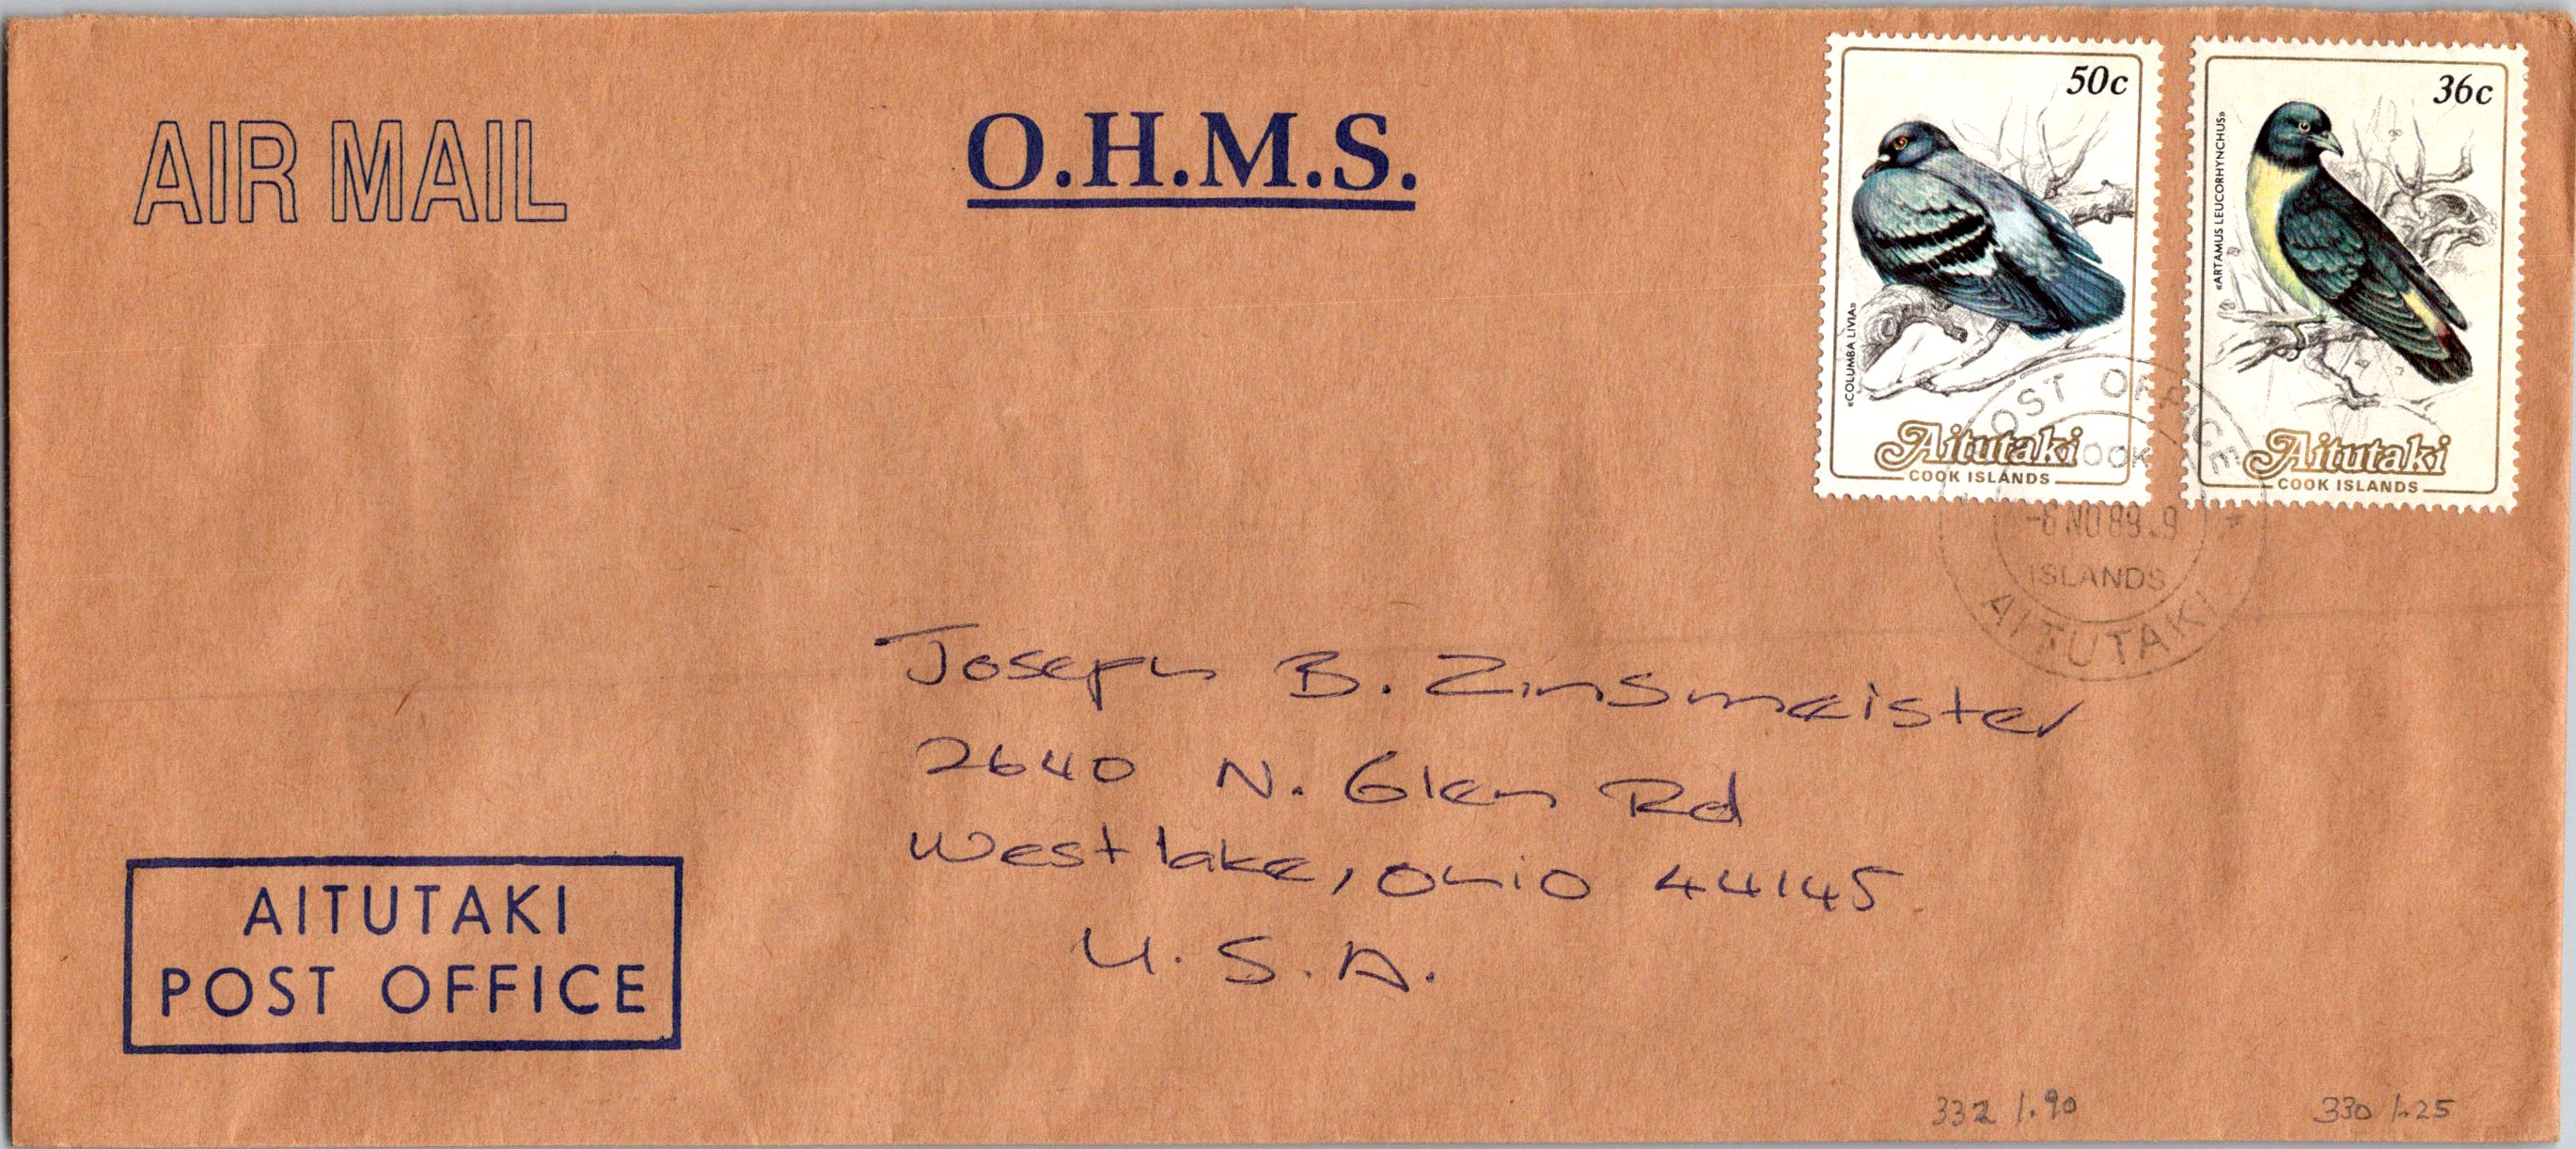 AIR MAIL
O.H.M.S.
50c
«COLUMBA LIVIA»
Aitutaki
COOK ISLANDS
36c
«ARTAMUS LEUCORHYNCHUS»
Aitutaki
COOK ISLANDS
POST OFFICE
COOK
ISLANDS
AITUTAKI
Joseph B. Zinsmeister
2640 N. Glen Rd
Westlake, Ohio 44145
U.S.A.
AITUTAKI
POST OFFICE
332 1.90
330 1.25